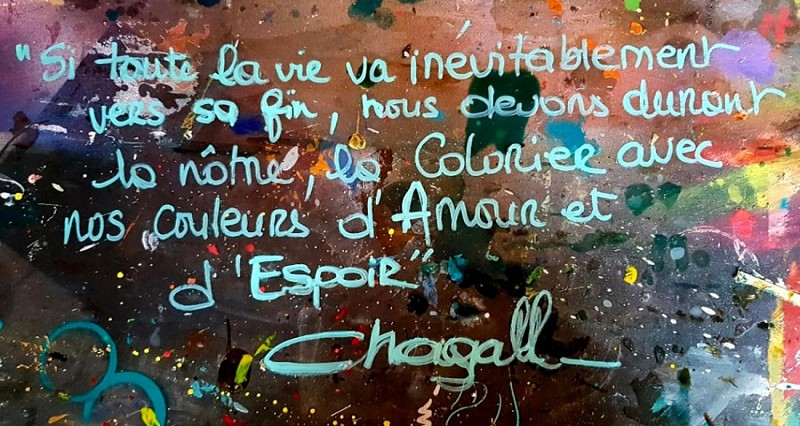 "Si toute la vie va inévitablement
vers sa fin, nous devons durant
la nôtre, la Colorier avec
nos couleurs d'Amour et
d'Espoir"
Chagall